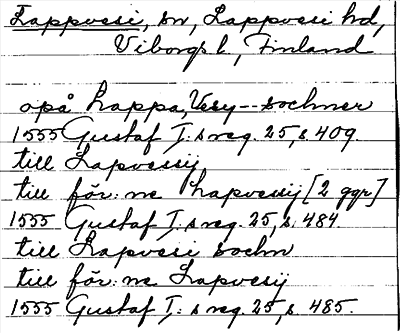 Lappvesi, sn, Lappvesi hd,
Viborgs l, Finland
opå Lappa, Vesy--sochner
1555 Gustaf I: s reg. 25, s. 409.
till Lapvessij
till för: ne Lapvessij [2 ggr]
1555 Gustaf I: s reg. 25, s. 484.
till Lapvesi sochn
till för: ne Lapvesij
1555 Gustaf I: s reg. 25, s. 485.